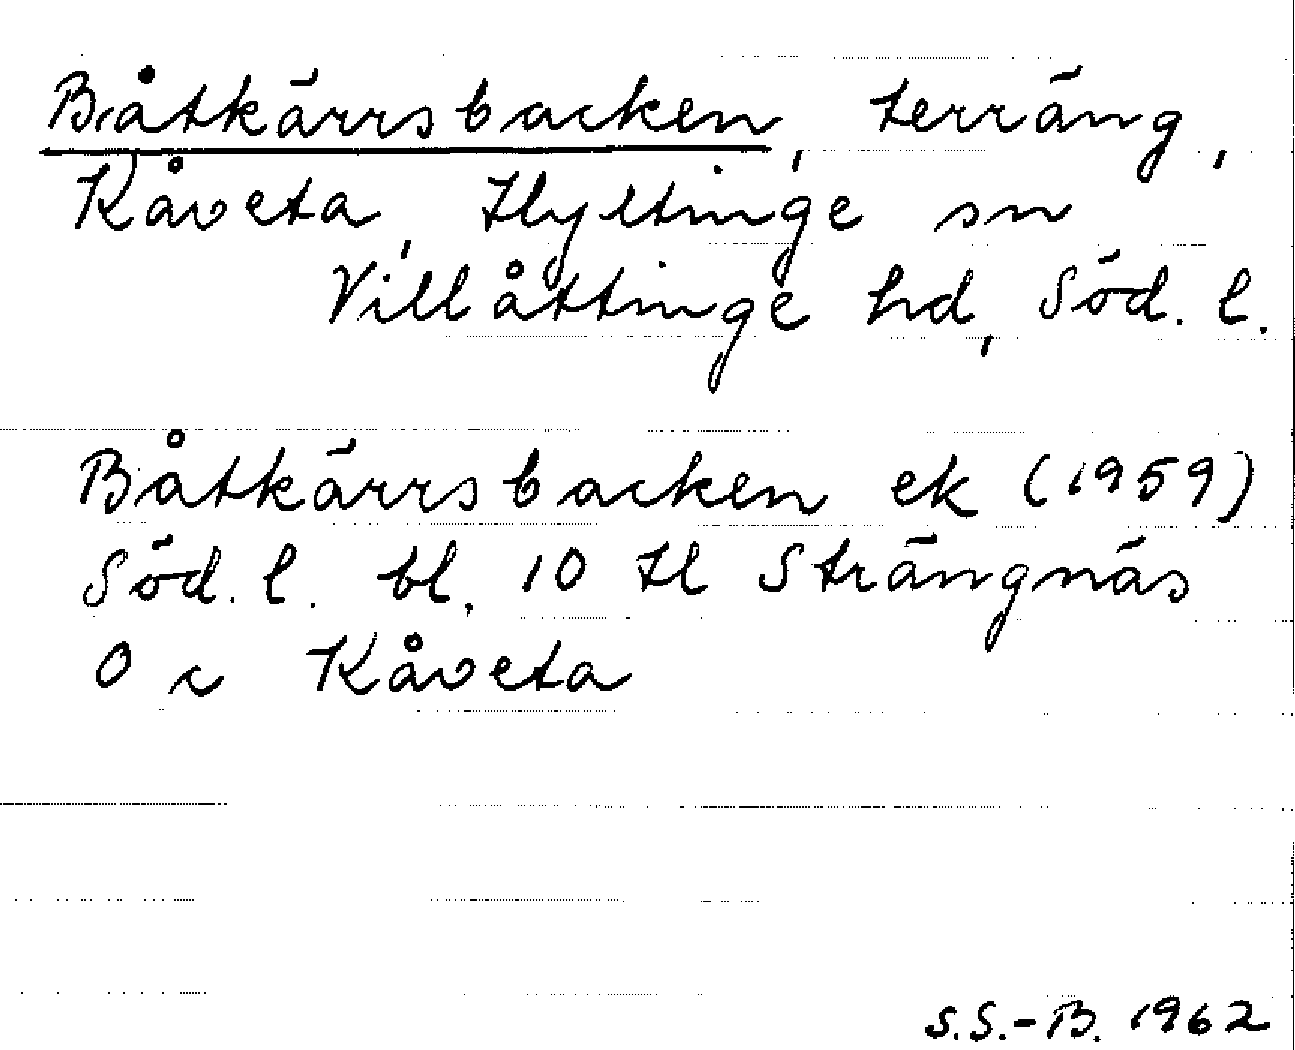 Båtkärrsbacken, terräng,
Kåveta, Hyltinge sn
Villåttinge hd, Söd. l.
Båtkärrsbacken ek (1959)
Söd. l. bl. 10 Hl Strängnäs
O c Kåveta
S.S.-B. 1962